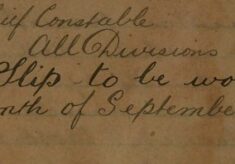 ief Constable
All Divisions
Slip to be wo
nth of Septembe